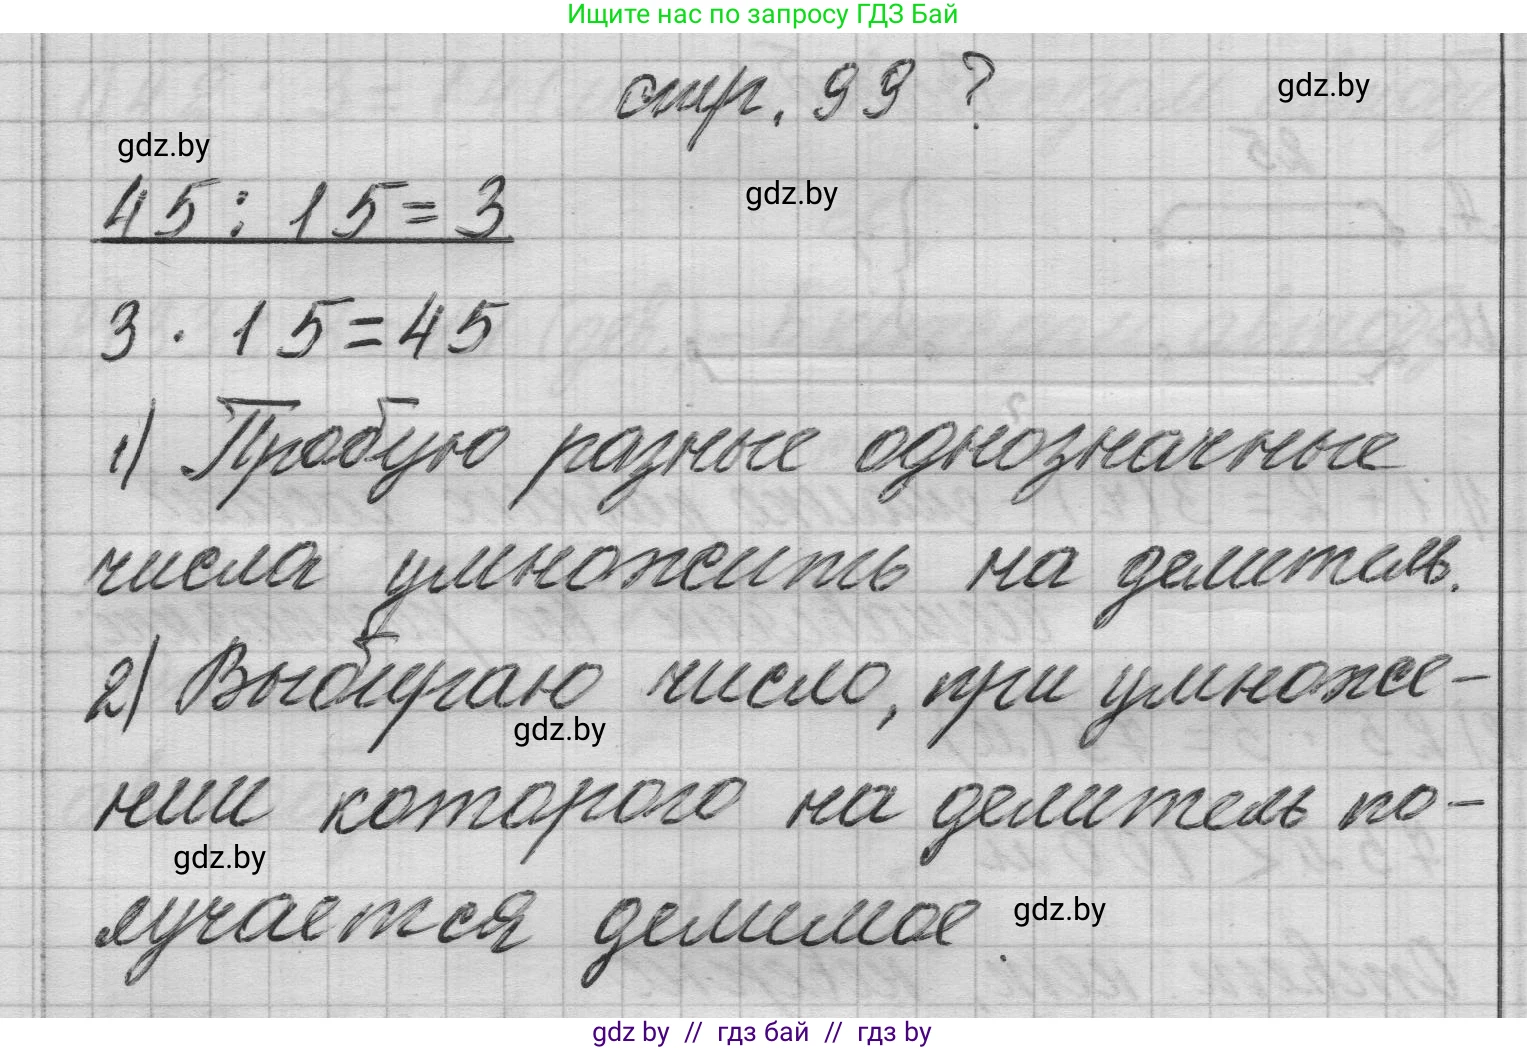 Ищите нас по запросу ГДЗ Бай
стр. 99 ?
gdz.by
gdz.by
45 : 15 = 3
gdz.by
3 · 15 = 45
1) Пробую разные однозначные
числа умножить на делитель.
2) Выбираю число, при умноже-
gdz.by
нии которого на делитель по-
gdz.by
лучается делимое.
gdz.by
gdz by // гдз бай // гдз by